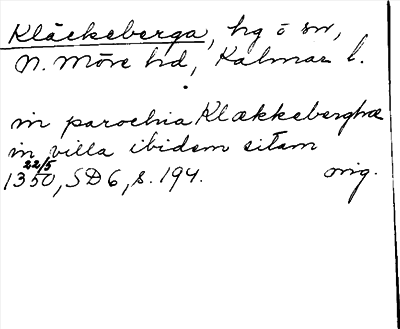 Kläckeberga, hg o sn,
N. Möre hd, Kalmar l.
in parochia Klækkeberghæ
in villa ibidem sitam
22/5
1350, SD6, s. 194. orig.